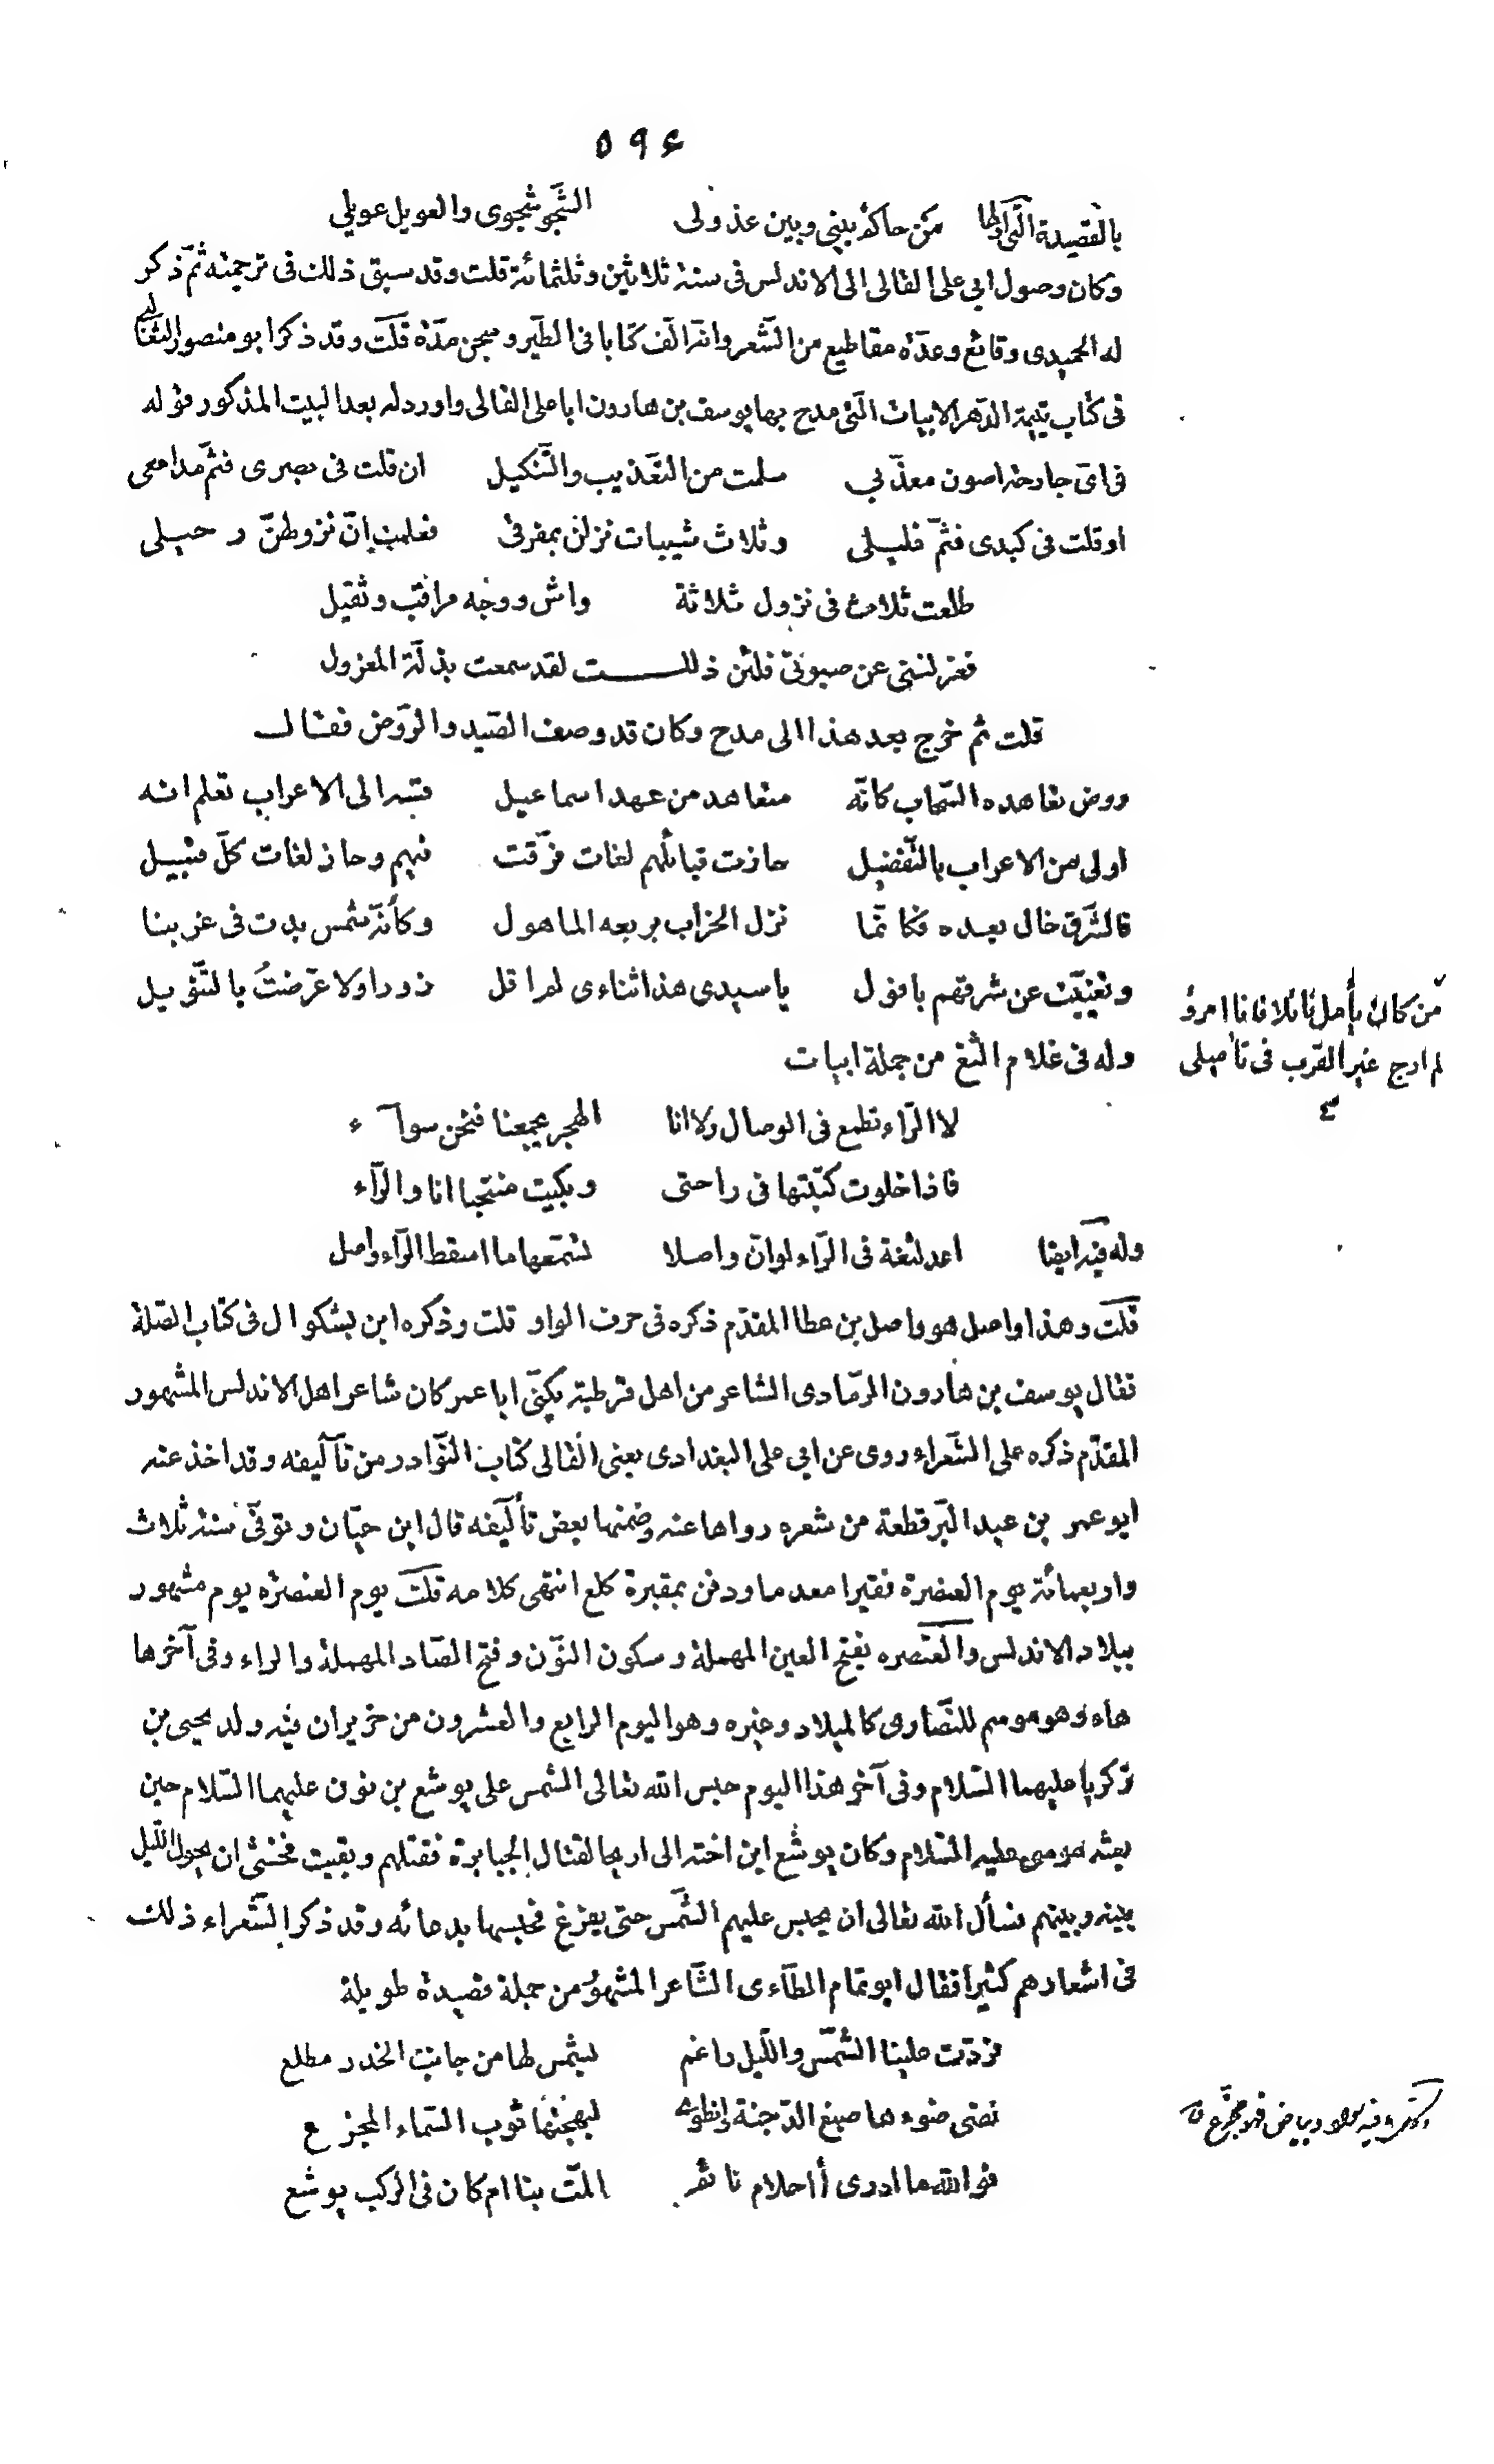 ٥٩٤
بالقصيدة التى اولها من حاكم بينى وبين عذولى الشجو شجوى والعويل عويلى
وكان وصول ابى على القالى الى الاندلس فى سنة ثلاثين وثلثمائة قلت وقد سبق ذلك فى ترجمته ثمّ ذكر
له الحميدى وقائع وعدّة مقاطيع من الشّعر وانّه الّف كتابا فى الطّير وسجن مدّة قلت وقد ذكر ابو منصور الثعالبى
فى كتاب يتيمة الدّهر الابيات الّتى مدح بها يوسف بن هارون ابا على القالى واورد له بعد البيت المذكور قوله
فى اىّ جارحة اصون معذّبى سلمت من التّعذيب والتّنكيل ان قلت فى بصرى فثمّ مدامعى
او قلت فى كبدى فثمّ غليلى وثلاث شيبات نزلن بمفرقى فعلمت انّ نزولهنّ رحيلى
طلعت ثلاث فى نزول ثلاثة واش ووجه مراقب وثقيل
فعزلننى عن صبوتى فلئن ذللت لقد سمعت بذلّة المعزول
قلت ثم خرج بعد هذا الى مدح وكان قد وصف الصّيد والرّوض فقال
روض تعاهده السّحاب كانّه متعاهد من عهد اسماعيل قسه الى الاعراب تعلم انه
اولى من الاعراب بالتّفضيل حازت قبائلهم لغات فرّقت فيهم وحاز لغات كلّ قبيل
فالشّرق خال بعده فكانّما نزل الخراب بربعه الماهول وكأنّه شمس بدت فى غربنا
وتغيّبت عن شرقهم بافول يا سيدى هذا ثناءى لم اقل زورا ولا عرّضتُ بالتّنويل
من كان يأمل نائلا فانا امرؤ
لم ارج غير القرب فى تأميلى
وله فى غلام الثغ من جملة ابيات
لا الرّاء تطمع فى الوصال ولا انا الهجر يجمعنا فنحن سوآء
فاذا خلوت كتبتها فى راحتى وبكيت منتحبا انا والرّآء
وله فيه ايضا اعد لثغة فى الرّاء لو انّ واصلا تسمّعها ما اسقط الرّاء واصل
قلت وهذا واصل هو واصل بن عطا المقدّم ذكره فى حرف الواو قلت وذكره ابن بشكوال فى كتاب الصّلة
فقال يوسف بن هارون الرّمّادى الشاعر من اهل قرطبة يكنّى ابا عمر كان شاعر اهل الاندلس المشهور
المقدّم ذكره على الشّعراء روى عن ابى على البغدادى يعنى القالى كتاب النّوادر من تآليفه وقد اخذ عنه
ابو عمر بن عبد البّر قطعة من شعره رواها عنه وضمنها بعض تآليفه قال ابن حيّان وتوفّى سنة ثلاث
واربعمائة يوم العنصرة فقيرا معدما ودفن بمقبرة كلع انتهى كلامه قلت يوم العنصرة يوم مشهور
ببلاد الاندلس والعنصره بفتح العين المهملة وسكون النّون وفتح الصّاد المهملة والراء وفى آخرها
هاء وهو موسم للنّصارى كالميلاد وغيره وهو اليوم الرابع والعشرون من حزيران فيه ولد يحيى بن
زكريا عليهما السّلام وفى آخر هذا اليوم حبس الله تعالى الشمس على يوشع بن نون عليهما السّلام حين
بعثه موسى عليه السّلام وكان يوشع ابن اخته الى اريحا لقتال الجبابرة فقتلهم وبقيت فخشى ان يحول اللّيل
بينه وبينهم فسأل الله تعالى ان يحبس عليهم الشّمس حتى يفرغ فحبسها بدعائه وقد ذكر الشّعراء ذلك
فى اشعارهم كثيرا فقال ابو تمام الطآءى الشّاعر المشهور من جملة قصيدة طويلة
فردّت علينا الشّمس واللّيل راغم بشمس لها من جانب الخدر مطلع
نضى ضوءها صبغ الدّجنة وانطوى لبهجتها ثوب السّماء المجزع
فوالله ما ادرى أاحلام نائم المّت بنا ام كان فى الركب يوشع